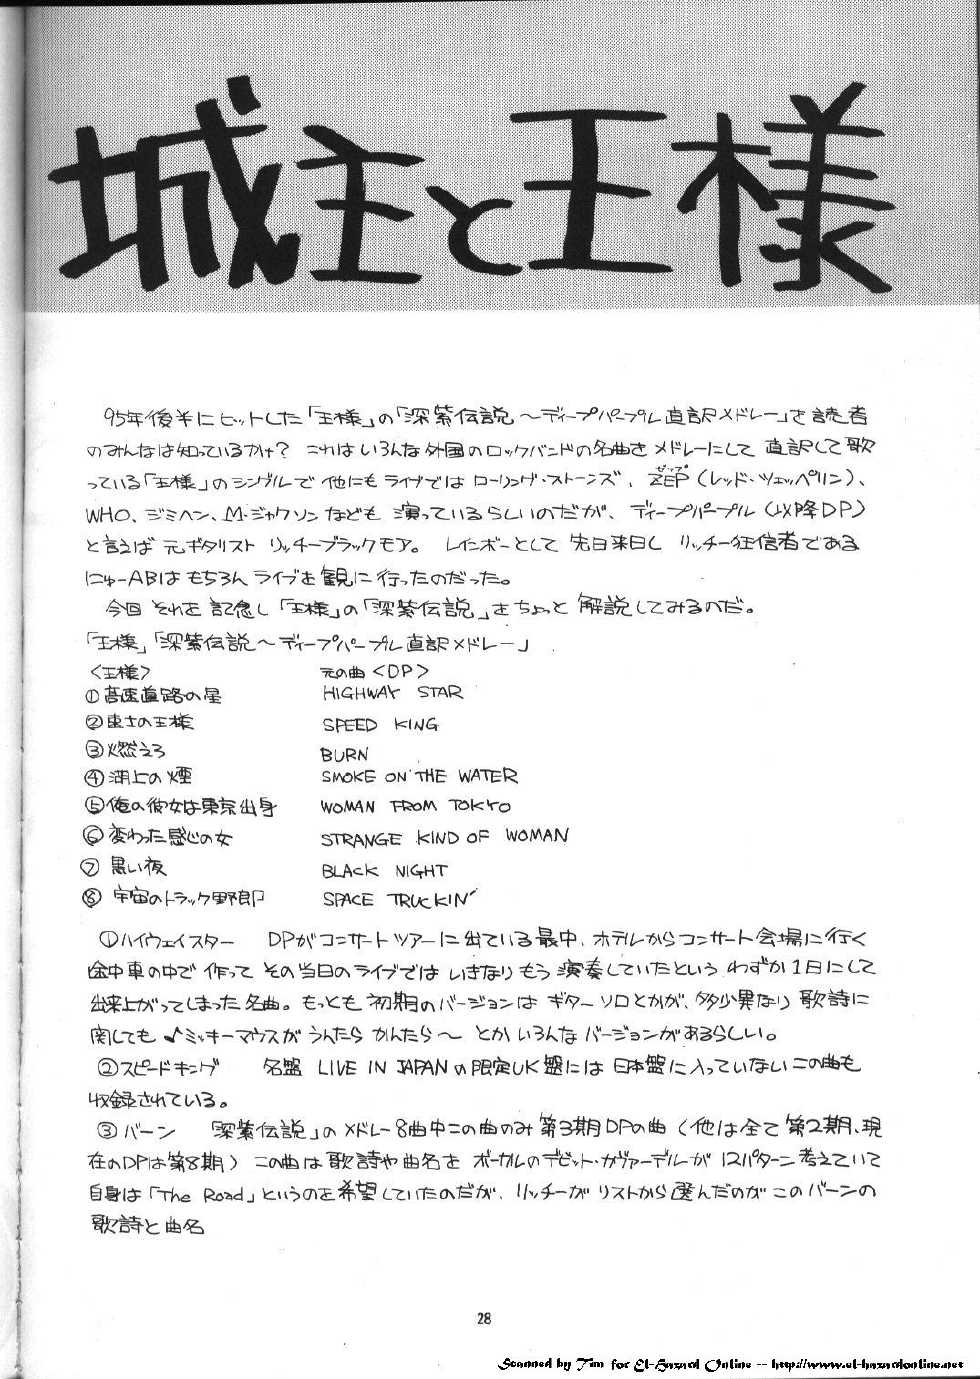 城主と王様
95年後半にヒットした「王様」の「深紫伝説～ディープパープル直訳メドレー」を読者
のみんなは知っているかけ? これはいろんな外国のロックバンドの名曲をメドレーにして 直訳して歌
っている「王様」のシングルで 他にもライブでは ローリング・ストーンズ、ZEP(レッド・ツェッペリン)、
ゼップ
WHO、ジミヘン、M・ジャクソンなども 演っているらしいのだが、ディープパープル(以降DP)
と言えば 元ギタリスト リッチーブラックモア。 レインボーとして 先日来日し リッチー狂信者である
にゅーABはもちろん ライブを観に行ったのだった。
今回 それを 記念し「王様」の「深紫伝説」をちょっと 解説してみるのだ。
「王様」「深紫伝説～ディープパープル直訳メドレー」
<王様> 元の曲<DP>
①高速道路の星 HIGHWAY STAR
②速さの王様 SPEED KING
③燃えろ BURN
④湖上の煙 SMOKE ON THE WATER
⑤俺の彼女は東京出身 WOMAN FROM TOKYO
⑥変わった感じの女 STRANGE KIND OF WOMAN
⑦黒い夜 BLACK NIGHT
⑧宇宙のトラック野郎 SPACE TRUCKIN'
①ハイウェイスター DPがコンサートツアーに出ている最中、ホテルからコンサート会場に行く
途中車の中で 作って その当日のライブでは いきなりもう演奏していたという わずか1日にして
出来上がってしまった名曲。もっとも 初期のバージョンは ギターソロとかが、多少異なり 歌詩に
関しても ♪ミッキーマウスが うんたら かんたら～ とか いろんな バージョンがあるらしい。
②スピードキング 名盤 LIVE IN JAPANの限定UK盤には 日本盤に入っていないこの曲も
収録されている。
③バーン 「深紫伝説」のメドレー8曲中この曲のみ第3期DPの曲(他は全て第2期、現
在のDPは第8期) この曲は歌詩や曲名を ボーカルのデビット・カヴァーデルが 12パターン考えていて
自身は「The Road」というのを希望していたのだが、リッチーが リストから選んだのが このバーンの
歌詩と曲名
28
Scanned by Tim for El-Hazard Online -- http://www.el-hazardonline.net